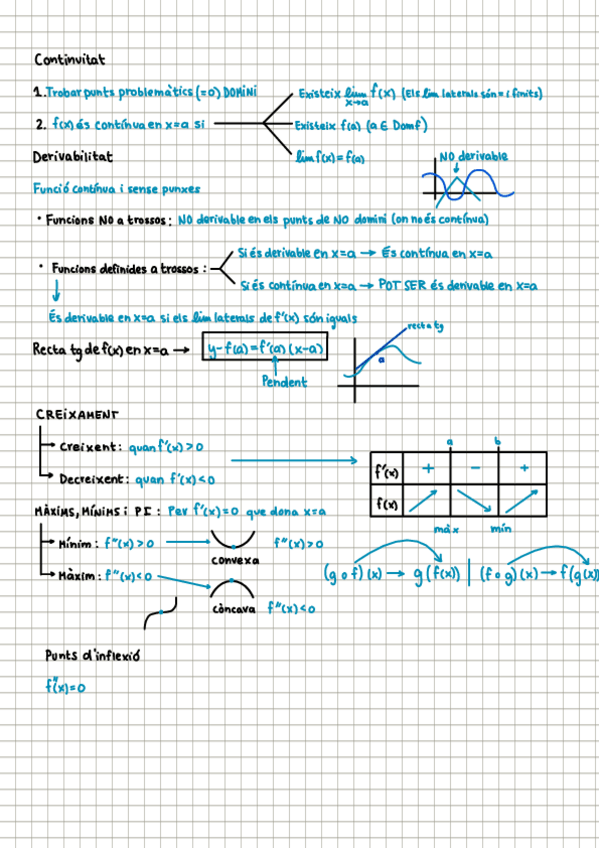 Continuitat
1. Trobar punts problemàtics (=0) DOMINI
Existeix lim x→a f(x) (Els lim laterals són = i finits)
2. f(x) és contínua en x=a si
Existeix f(a) (a ∈ Domf)
lim f(x) = f(a)
Derivabilitat
NO derivable
Funció contínua i sense punxes
• Funcions NO a trossos: NO derivable en els punts de NO domini (on no és contínua)
• Funcions definides a trossos:
Si és derivable en x=a → És contínua en x=a
Si és contínua en x=a → POT SER és derivable en x=a
És derivable en x=a si els lim laterals de f'(x) són iguals
Recta tg de f(x) en x=a → y-f(a)=f'(a)(x-a)
recta tg
a
Pendent
CREIXAMENT
Creixent: quan f'(x)>0
Decreixent: quan f'(x)<0
a b
f'(x) + - +
f(x)
màx mín
MÀXIMS, MÍNIMS i PI: Per f'(x)=0 que dona x=a
Mínim: f"(x)>0
f"(x)>0
convexa
Màxim: f"(x)<0
còncava f"(x)<0
(g o f)(x) → g(f(x)) | (f o g)(x) → f(g(x))
Punts d'inflexió
f"(x)=0